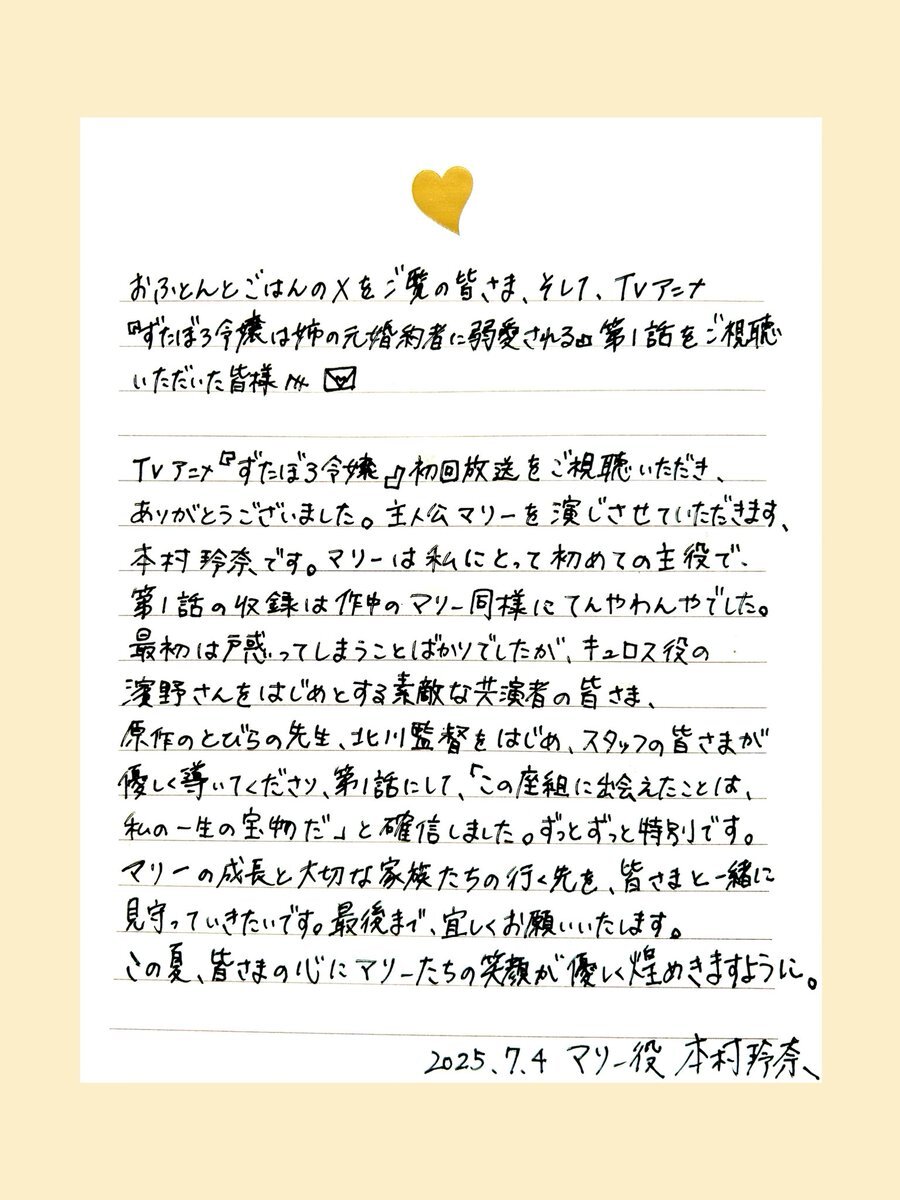 おふとんとごはんのXをご覧の皆さま、そして、TVアニメ
『ずたぼろ令嬢は姉の元婚約者に溺愛される』第1話をご視聴
いただいた皆様へ
TVアニメ『ずたぼろ令嬢』初回放送をご視聴いただき、
ありがとうございました。主人公マリーを演じさせていただきます、
本村玲奈です。マリーは私にとって初めての主役で、
第1話の収録は作中のマリー同様にてんやわんやでした。
最初は戸惑ってしまうことばかりでしたが、キュロス役の
濱野さんをはじめとする素敵な共演者の皆さま、
原作のとびらの先生、北川監督をはじめ、スタッフの皆さまが
優しく導いてくださり、第1話にして、「この座組に出会えたことは、
私の一生の宝物だ」と確信しました。ずっとずっと特別です。
マリーの成長と大切な家族たちの行く先を、皆さまと一緒に
見守っていきたいです。最後まで、宜しくお願いいたします。
この夏、皆さまの心にマリーたちの笑顔が優しく煌めきますように。
2025.7.4 マリー役 本村玲奈